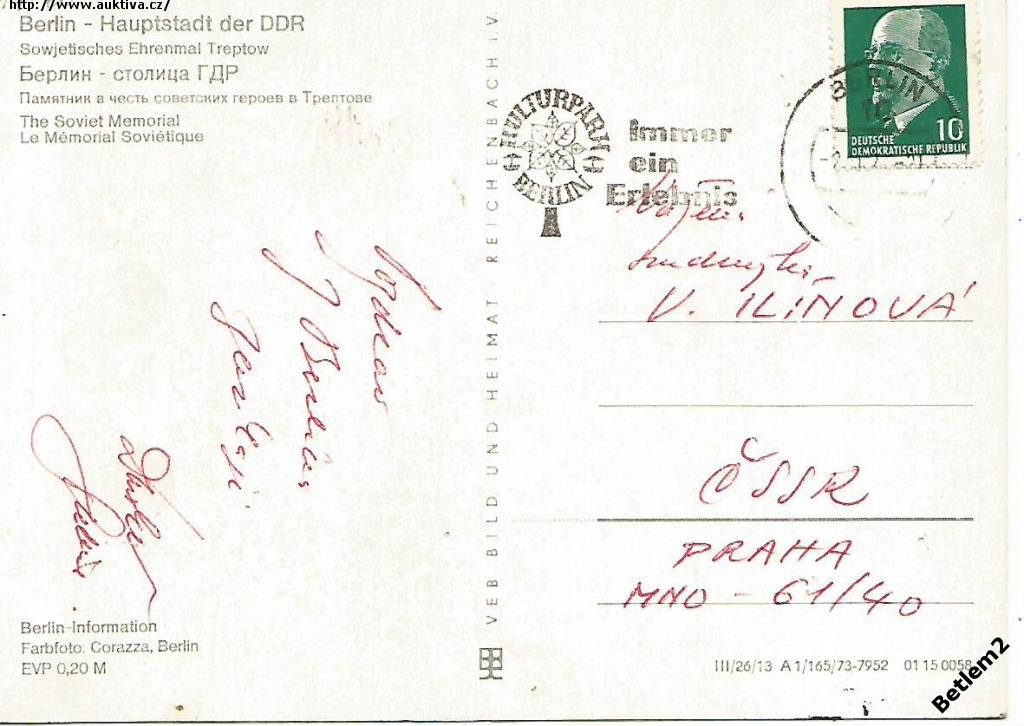 http://www.auktiva.cz/
Berlin - Hauptstadt der DDR
Sowjetisches Ehrenmal Treptow
Берлин - столица ГДР
Памятник в честь советских героев в Трептове
The Soviet Memorial
Le Mémorial Soviétique
KULTURPARK
BERLIN
Immer
ein
Erlebnis
BERLIN
10
DEUTSCHE
DEMOKRATISCHE REPUBLIK
Vážená
soudružka
V. ILÍNOVÁ
ČSSR
PRAHA
MNO - 61/40
Pozdrav
z Berlína
VEB BILD UND HEIMAT REICHENBACH I.V.
Berlin-Information
Farbfoto: Corazza, Berlin
EVP 0,20 M
III/26/13 A 1/165/73-7952 01 15 0058
Betlem2